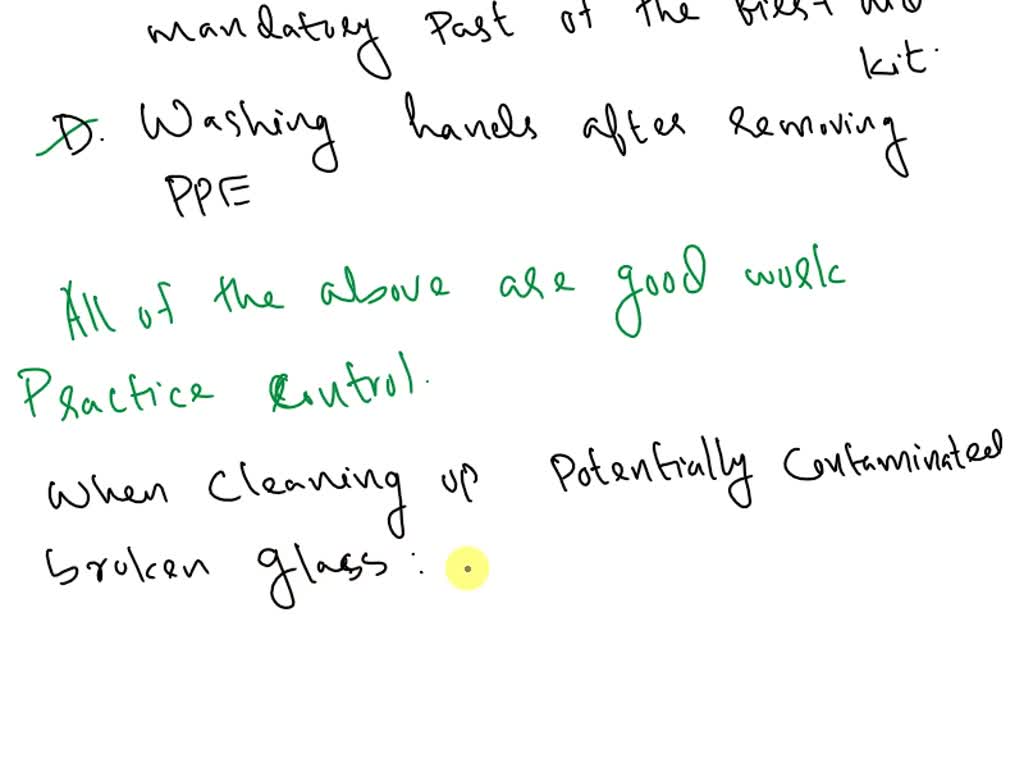 mandatory Part of the First Aid
kit.
D. Washing hands after removing
PPE
All of the above are good work
Practice control.
When cleaning up Potentially contaminated
broken glass: